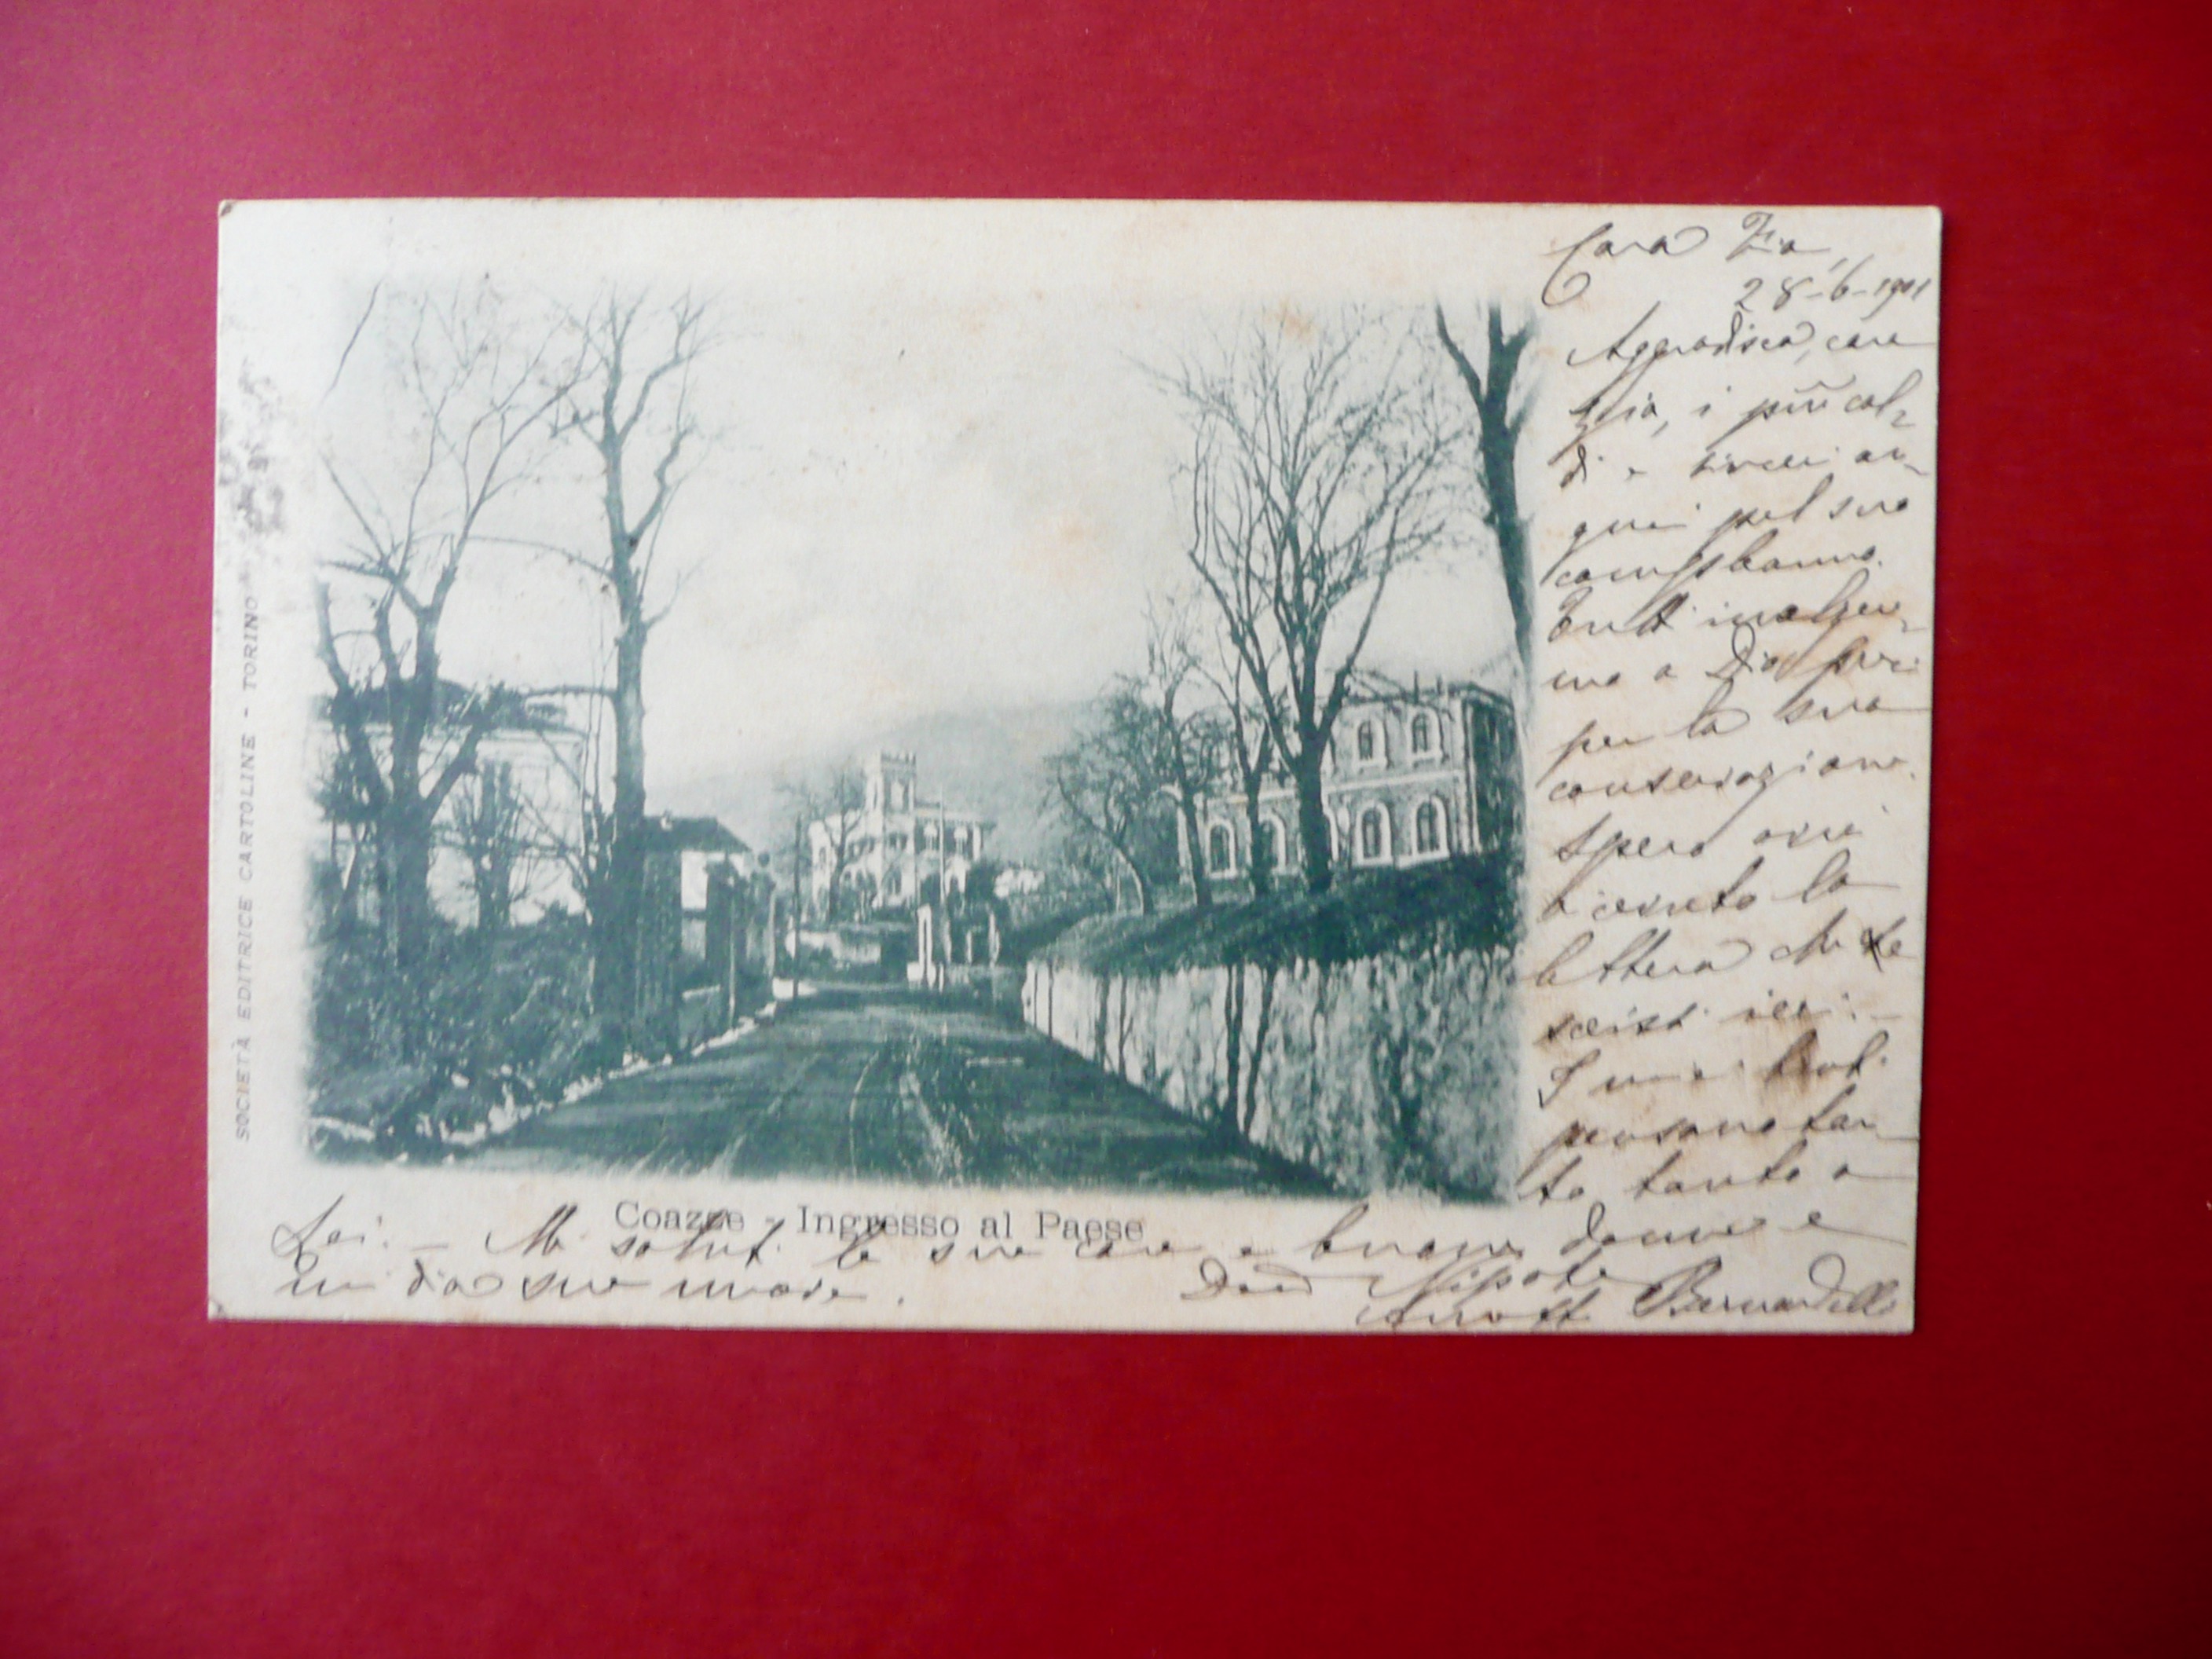 Cara Zia,
28-6-1901
Aggradisca, cara
Zia, i più cal-
di e sinceri au-
guri pel suo
compleanno.
Tutti
a Dio preci
per la sua
conservazione.
Spero avrà
ricevuto la
lettera che le
scrissi ieri. -
I miei tutti
pensano tan
to tanto a
Lei. - Mi saluti le sue care e buone donne e
mi dia sue nuove.
Nipote
Bernardello
Coazze - Ingresso al Paese
SOCIETÀ EDITRICE CARTOLINE - TORINO